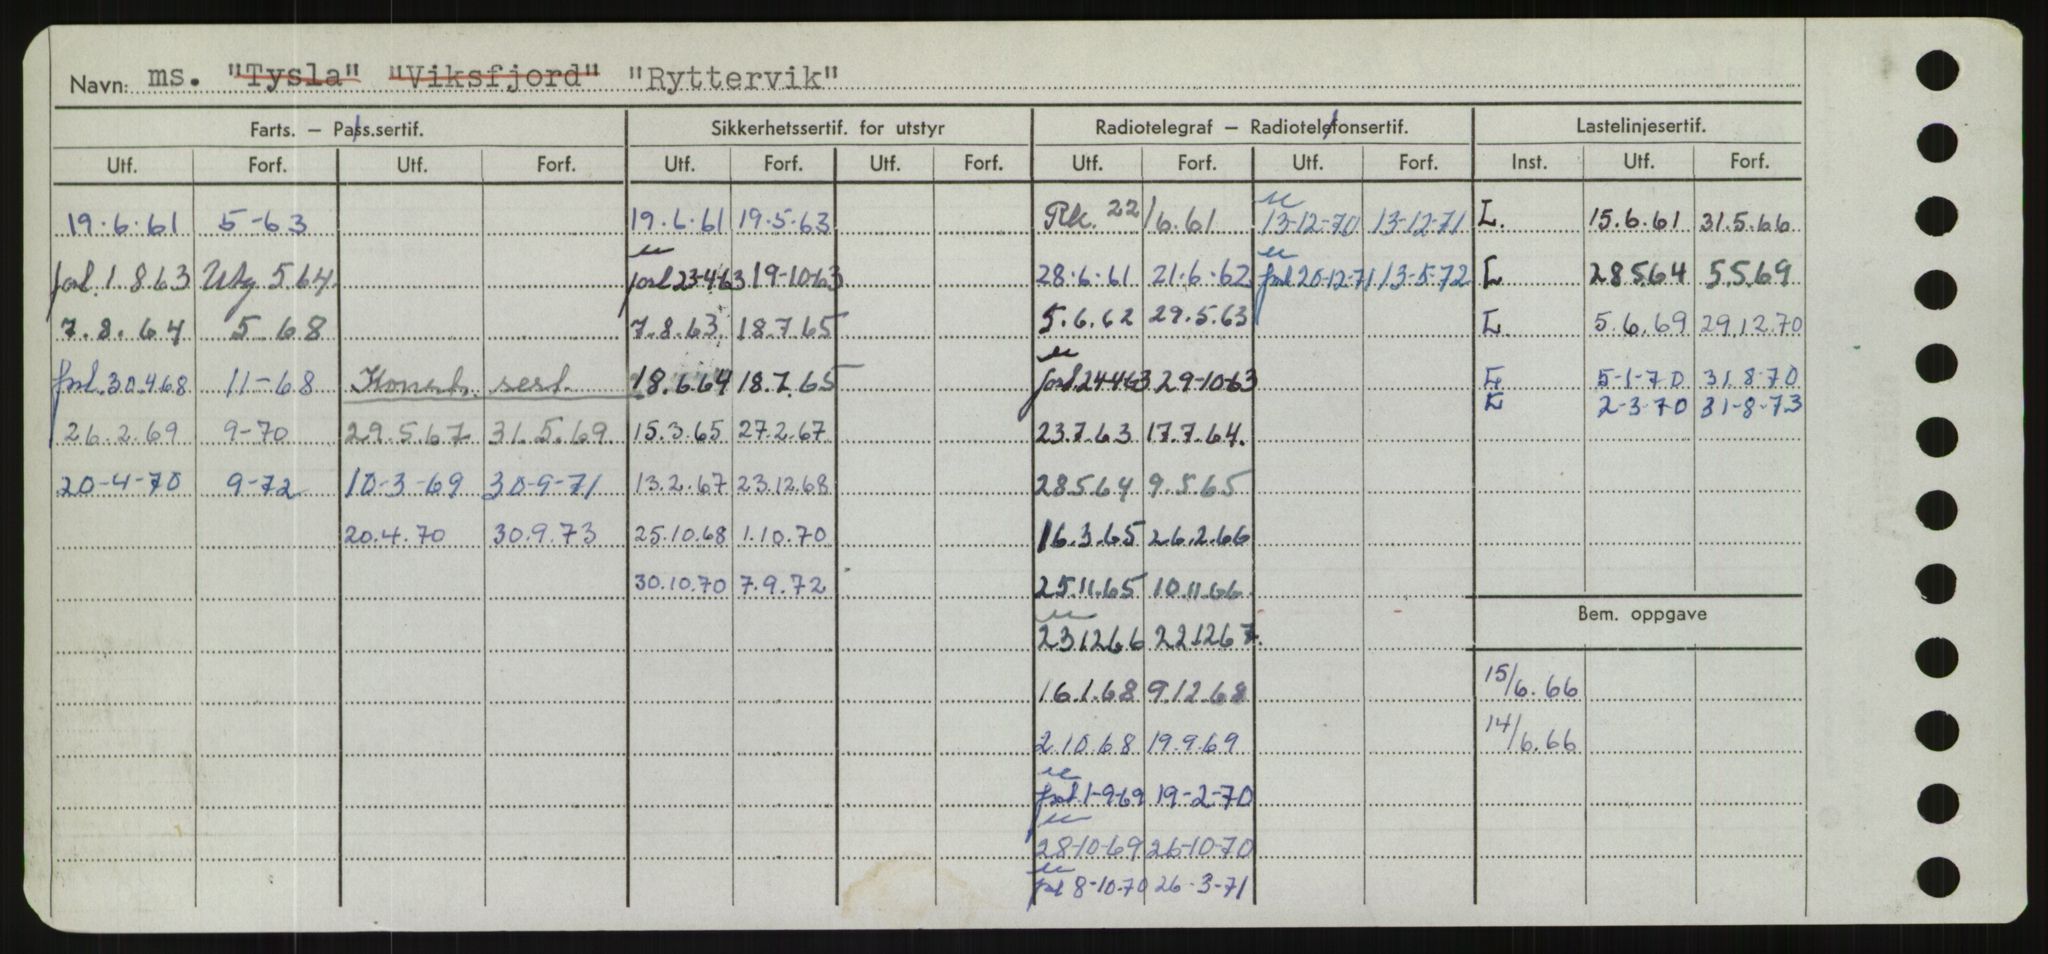 Navn: ms. "Tysla" "Viksfjord" "Ryttervik"
Farts. – Pass.sertif. Sikkerhetssertif. for utstyr Radiotelegraf – Radiotelefonsertif. Lastelinjesertif.
Utf. Forf. Utf. Forf. Utf. Forf. Utf. Forf. Utf. Forf. Utf. Forf. Inst. Utf. Forf.
19.6.61 5-63 19.6.61 19.5.63 Rk. 22/6.61 13-12-70 13-12-71 L. 15.6.61 31.5.66
forl. 1.8.63 Utg 5 64. forl 23-4-63 19-10-63 28.6.61 21.6.62 forl 20-12-71 13-5-72 L 28.5.64 5.5.69
7.8.64 5.68 7.8.63 18.7.65 5.6.62 29.5.63 L. 5.6.69 29.12.70
forl. 30.4.68 11-68 Konstr. sert. 18.6.64 18.7.65 forl. 24-4-63 29-10-63 L 5-1-70 31.8-70
L 2-3-70 31-8-73
26.2.69 9-70 29.5.67 31.5.69 15.3.65 27.2.67 23.7.63 17.7.64.
20-4-70 9-72 10-3-69 30-9-71 13.2.67 23.12.68 28.5.64 9.5.65
20.4.70 30.9.73 25.10.68 1.10.70 16.3.65 26.2.66
30.10.70 7.9.72 25.11.65 10.11.66
Bem. oppgave
23.12.66 22.12.67.
16.1.68 9.12.68 15/6.66
2.10.68 19.9.69 14/6.66
forl. 1-9-69 19-2-70
28-10-69 26-10-70
forl 8-10-70 26-3-71